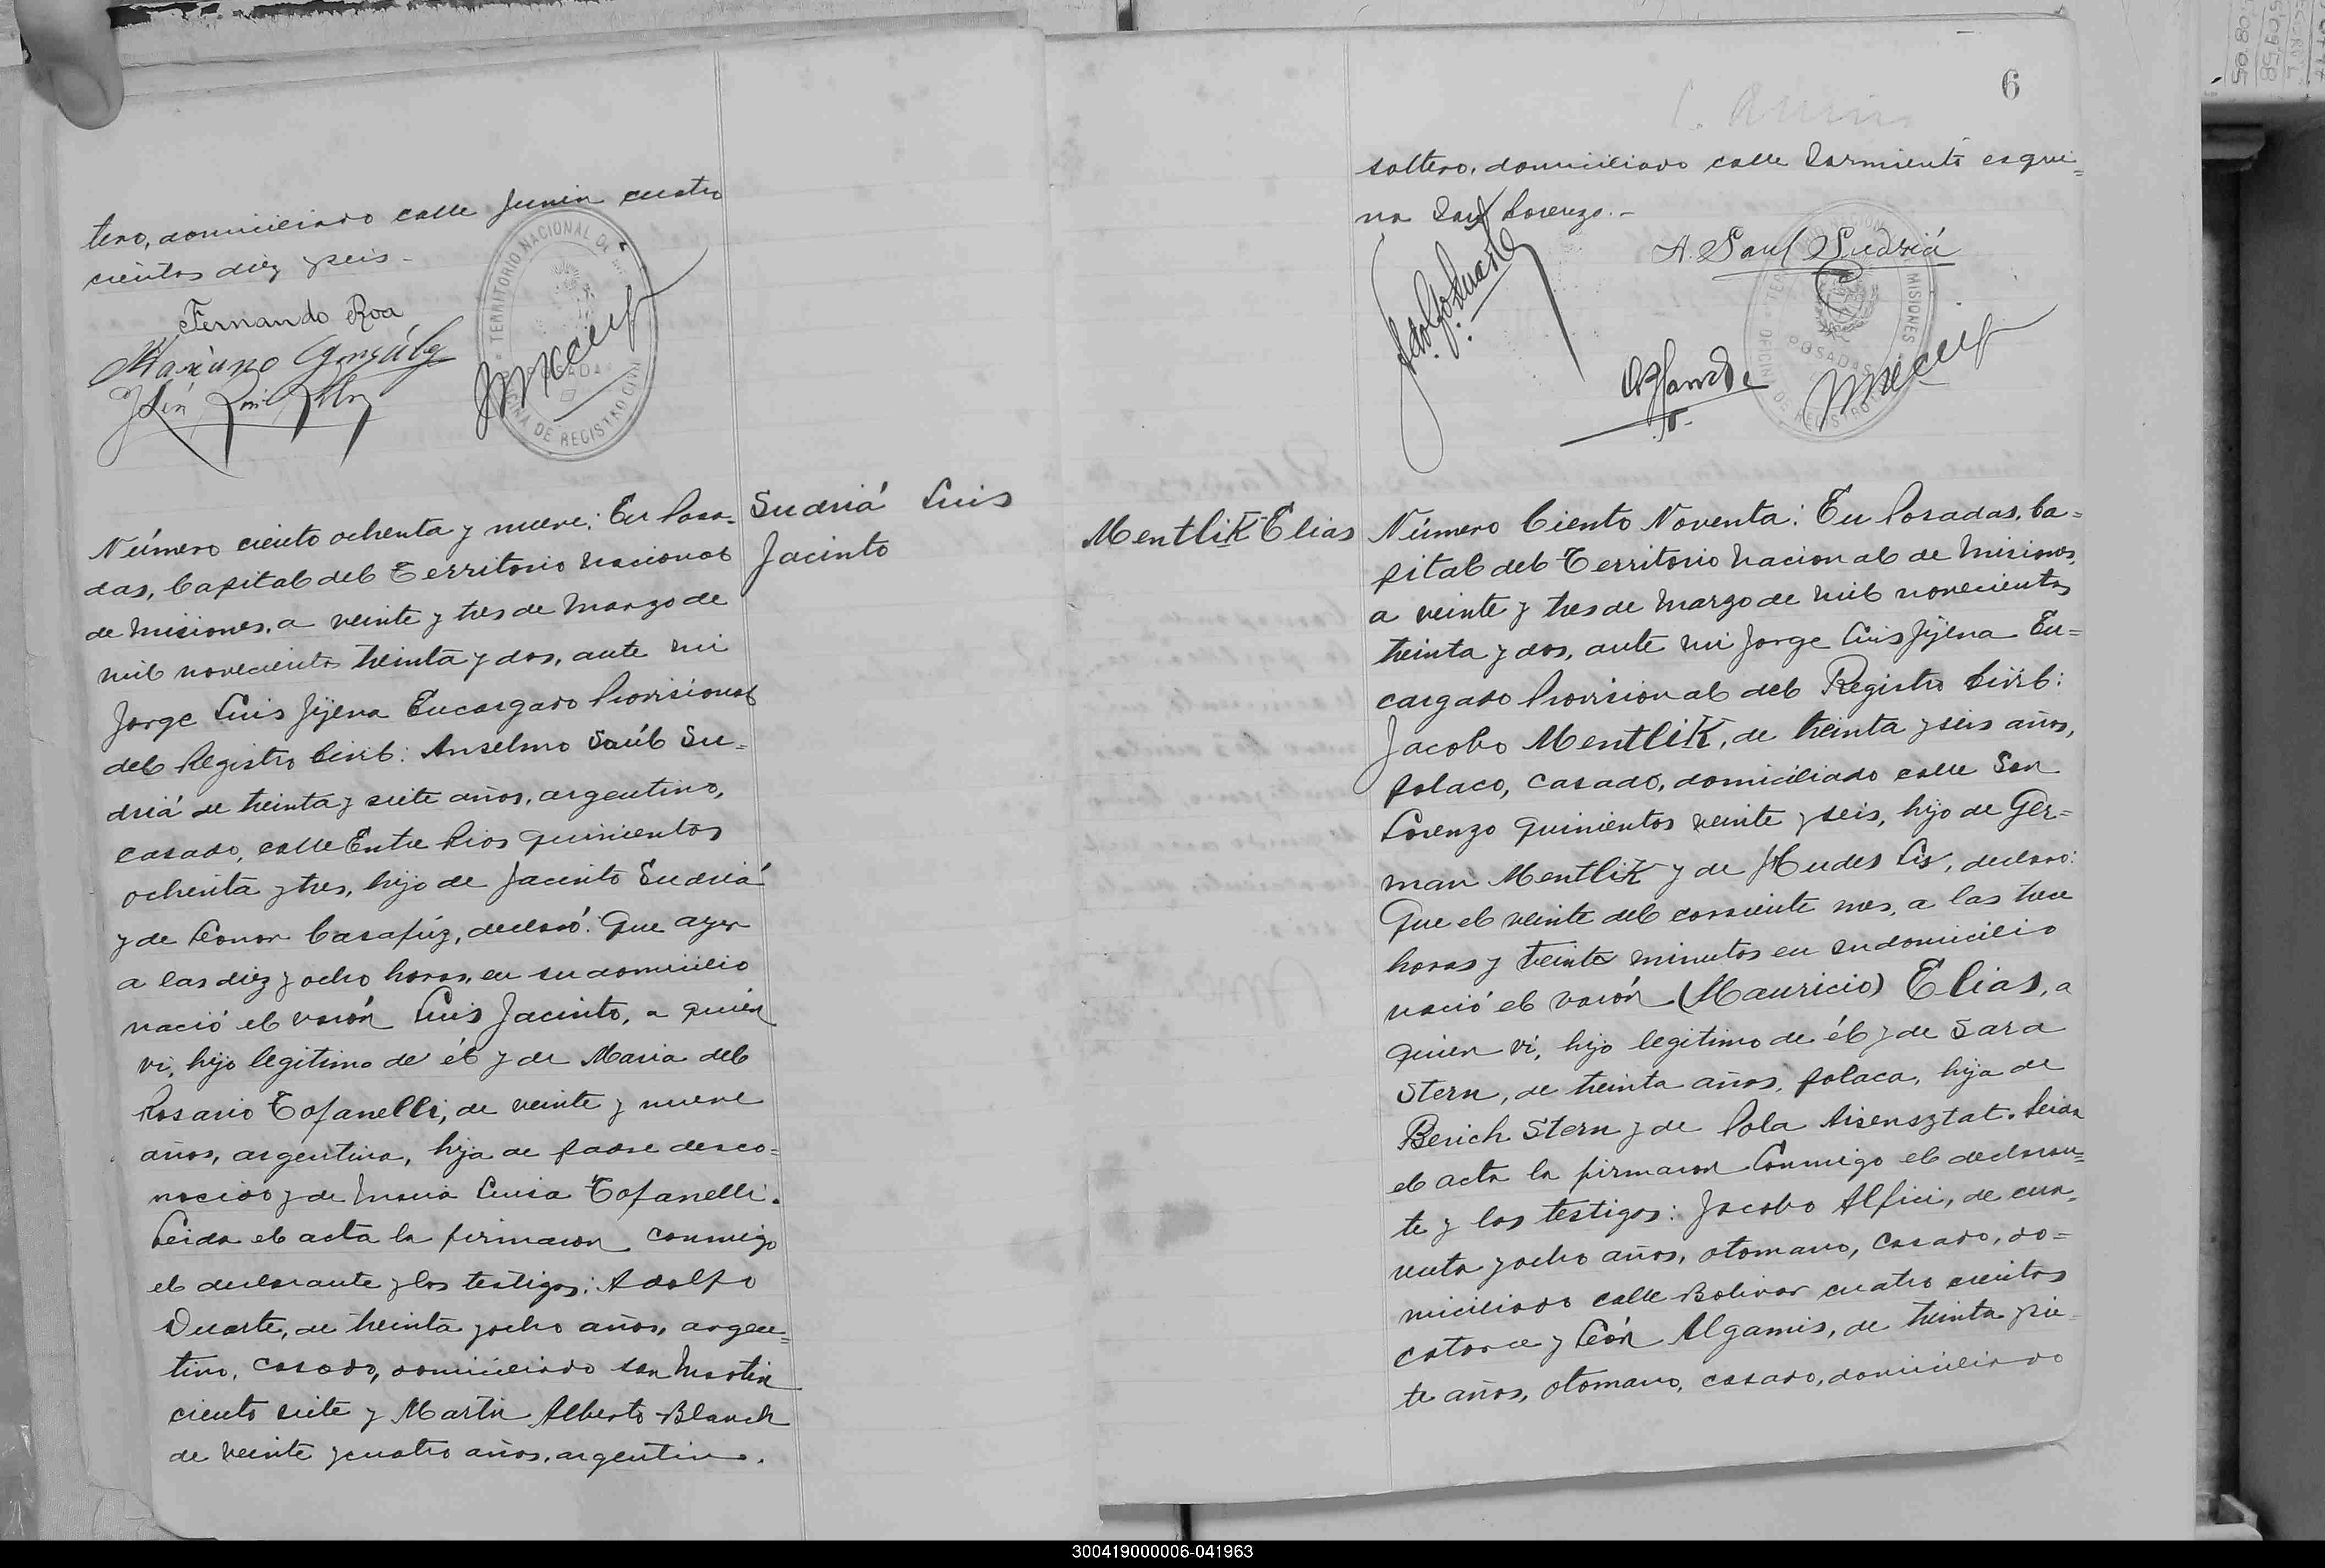 tero, domiciliado calle Junin cuatro
cientos diez y seis.-
Fernando Roa
Mariano González
TERRITORIO NACIONAL DE
OFICINA DE REGISTRO CIVIL
Número ciento ochenta y nueve: En Posa-
das, Capital del Territorio Nacional
de Misiones, a veinte y tres de Marzo de
mil novecientos treinta y dos, ante mi
Jorge Luis Jijena Encargado Provisional
del Registro Civil: Anselmo Saúl Su-
driá de treinta y siete años, argentino,
casado, calle Entre Rios quinientos
ochenta y tres, hijo de Jacinto Sudriá
y de Leonor Casafúz, declaró: Que ayer
a las diez y ocho horas, en su domicilio
nació el varón Luis Jacinto, a quien
vi, hijo legitimo de él y de Maria del
Rosario Tofanelli, de veinte y nueve
años, argentina, hija de padre desco-
nocido y de Maria Luisa Tofanelli.
Leida el acta la firmaron conmigo
el declarante y los testigos: Adolfo
Duarte, de treinta y ocho años, argen-
tino, casado, domiciliado San Martin
ciento siete y Martin Alberto Blanch
de veinte y cuatro años, argentino.
Sudriá Luis
Jacinto
6
soltero, domiciliado calle Sarmiento esqui-
na San Lorenzo.-
A. Saul Sudriá
Adolfo Duarte
MISIONES
POSADAS
OFICINA DE REGISTRO
Mentlik Elias
Número Ciento Noventa: En Posadas, Ca-
pital del Territorio Nacional de Misiones,
a veinte y tres de Marzo de mil novecientos
treinta y dos, ante mi Jorge Luis Jijena En-
cargado Provisional del Registro Civil:
Jacobo Mentlik, de treinta y seis años,
polaco, casado, domiciliado calle San
Lorenzo quinientos veinte y seis, hijo de Ger-
man Mentlik y de Hudes Lis, declaró:
Que el veinte del corriente mes, a las trece
horas y treinta minutos en su domicilio
nació el varón (Mauricio) Elias, a
quien vi, hijo legitimo de él y de Sara
Stern, de treinta años, polaca, hija de
Berich Stern y de Pola Aisensztat. Leida
el acta la firmaron conmigo el declaran-
te y los testigos: Jacobo Alfici, de cua-
renta y ocho años, otomano, casado, do-
miciliado calle Bolivar cuatro cientos
catorce y León Algamis, de treinta y sie-
te años, otomano, casado, domiciliado
300419000006-041963